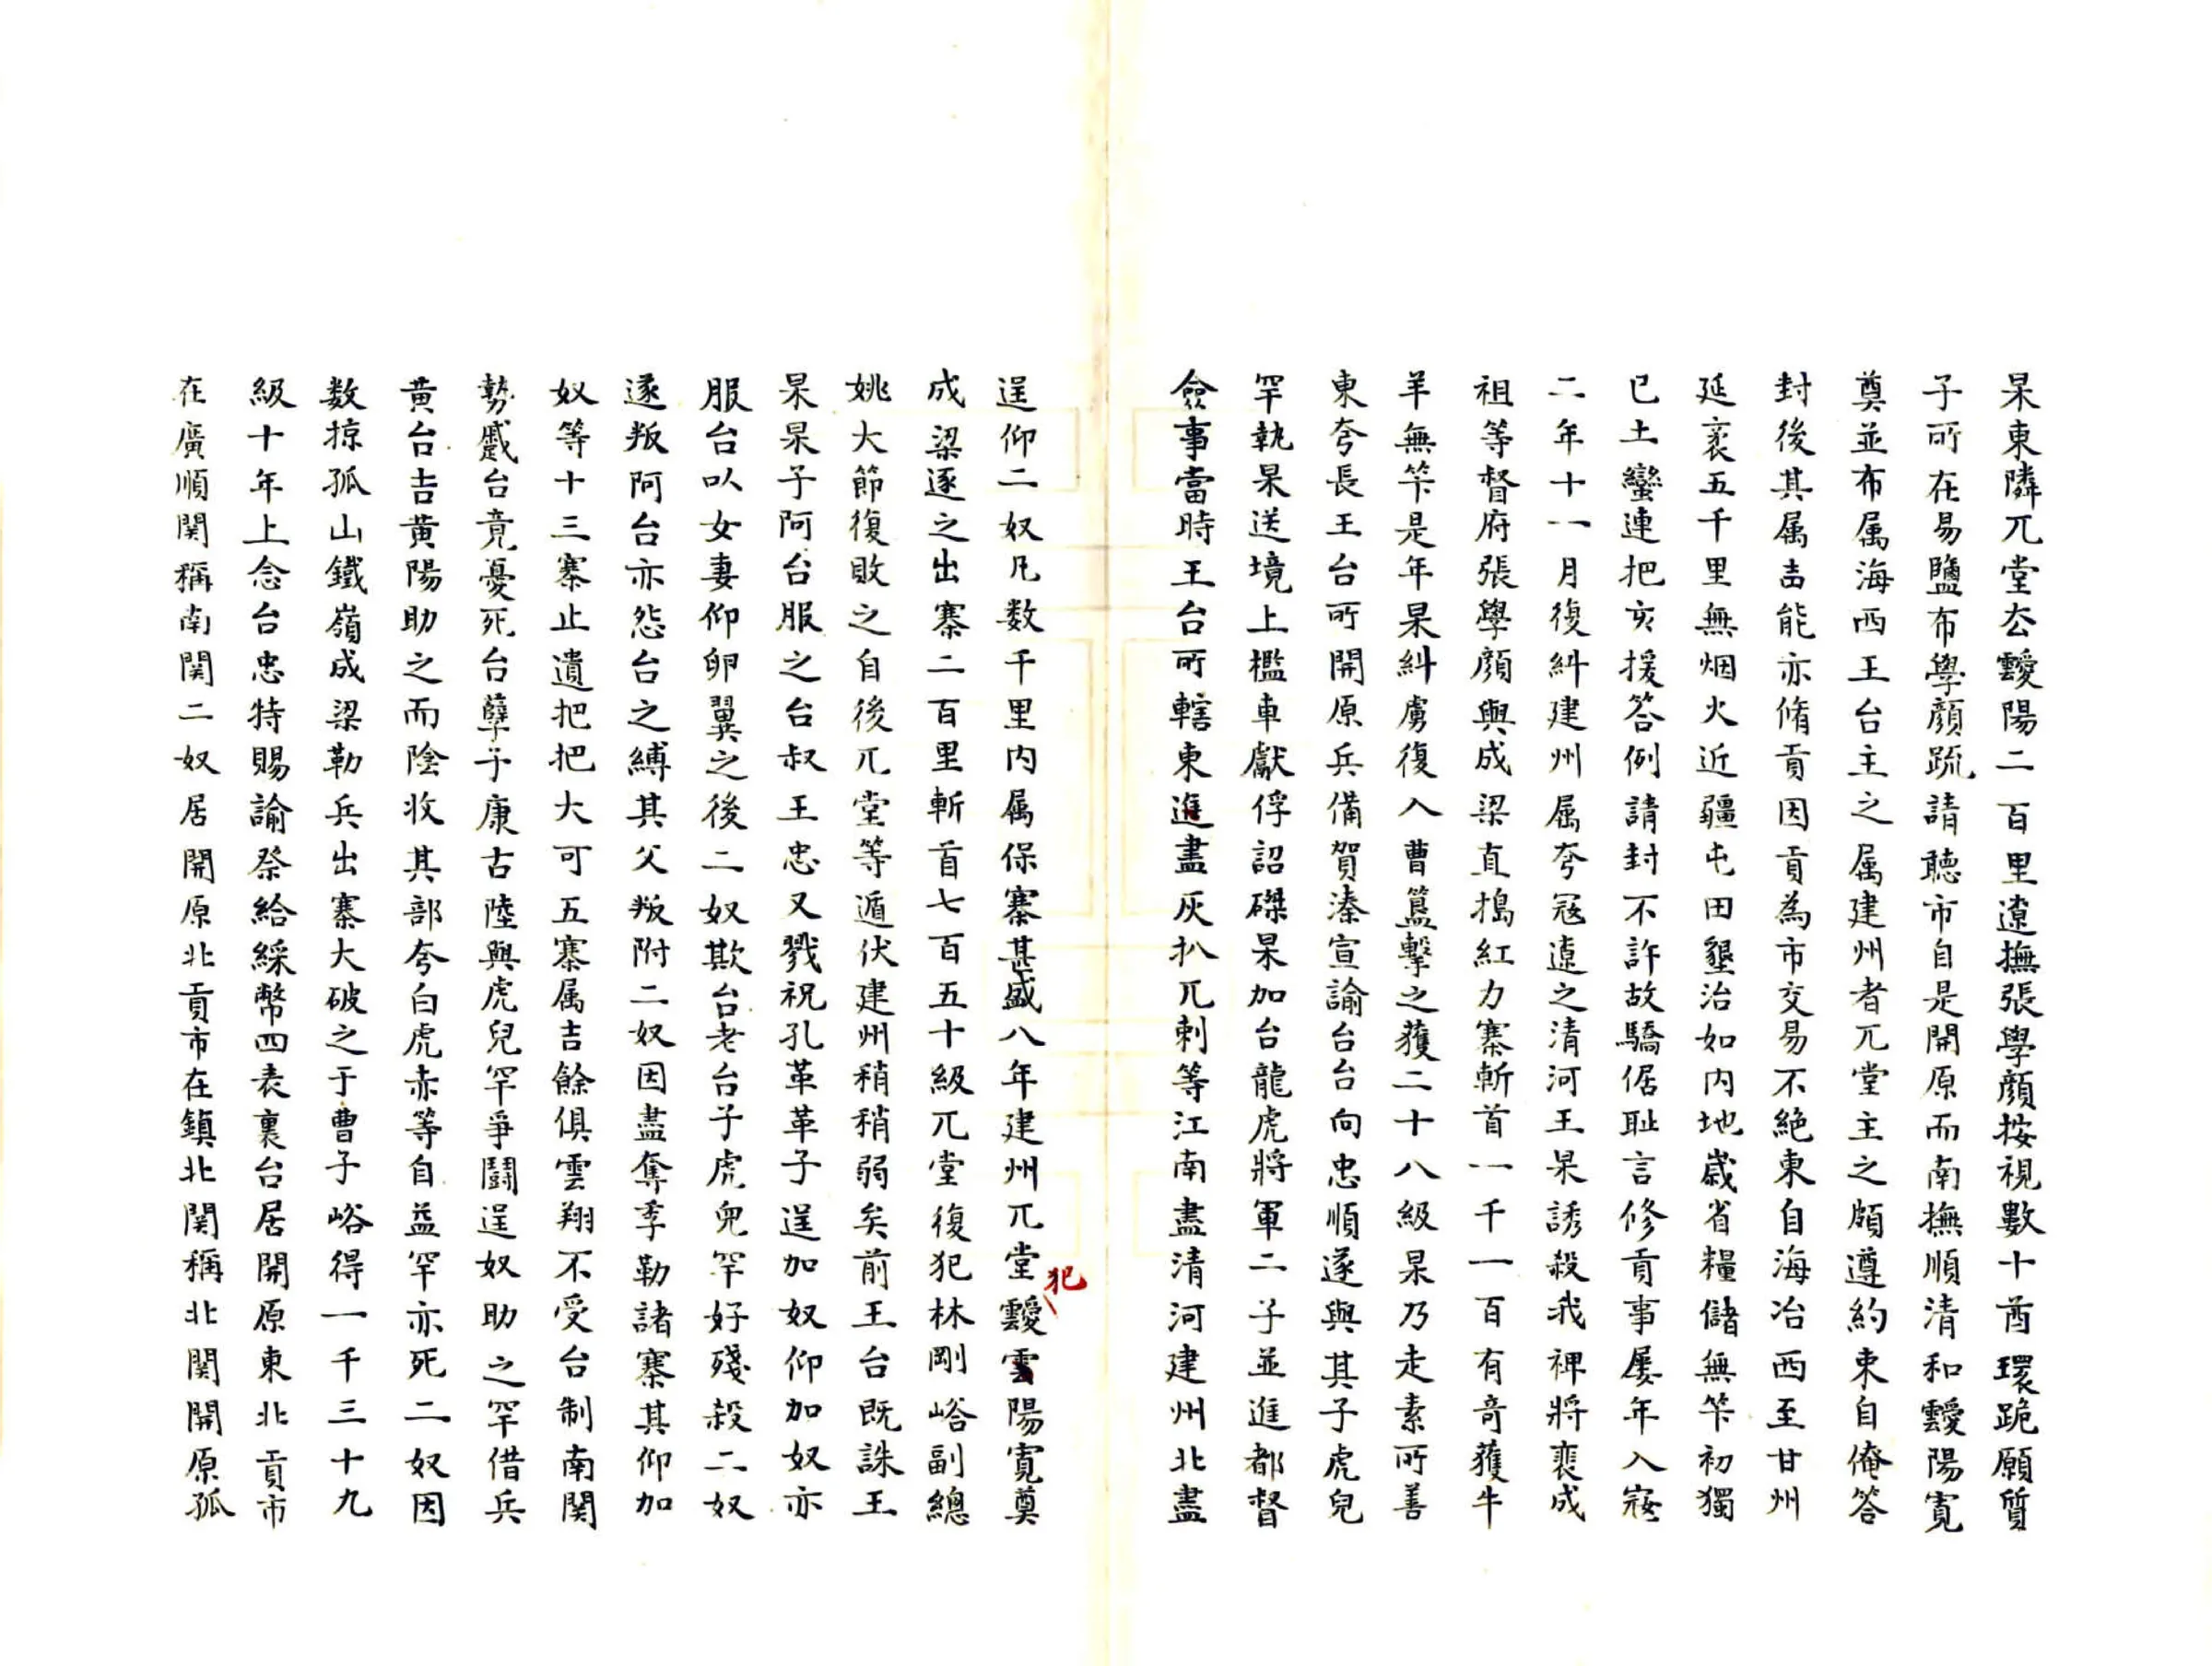 杲東隣兀堂厺靉陽二百里遼撫張學顔按視數十酋環跪願質
子所在易鹽布學顔疏請聽市自是開原而南撫順清和靉陽寛
奠並布属海西王台主之属建州者兀堂主之頗遵約束自俺答
封後其属吉能亦脩貢因貢為市交易不絶東自海冶西至甘州
延袤五千里無烟火近疆屯田墾治如内地嵗省糧儲無筭初獨
已土蠻連把亥援答例請封不許故驕倨耻言修貢事屡年入㓂
二年十一月復糾建州属夸冦遼之清河王杲誘殺我裨將裴成
祖等督府張學顔與成梁直搗紅力寨斬首一千一百有竒獲牛
羊無筭是年杲糾虜復入曹簠擊之獲二十八級杲乃走素所善
東夸長王台所開原兵備賀溱宣諭台台向忠順遂與其子虎兒
罕執杲送境上檻車獻俘詔磔杲加台龍虎將軍二子並進都督
僉事當時王台所轄東進盡灰扒兀剌等江南盡清河建州北盡
逞仰二奴凡数千里内属保寨甚盛八年建州兀堂犯靉陽寛奠
成梁逐之出寨二百里斬首七百五十級兀堂復犯林剛峪副總
姚大節復敗之自後兀堂等遁伏建州稍稍弱矣前王台既誅王
杲杲子阿台服之台叔王忠又戮祝孔革革子逞加奴仰加奴亦
服台以女妻仰卵翼之後二奴欺台老台子虎兒罕好殘殺二奴
遂叛阿台亦怨台之縛其父叛附二奴因盡奪季勒諸寨其仰加
奴等十三寨止遺把把大可五寨属吉餘俱雲翔不受台制南関
勢蹙台竟憂死台孽子康古陸與虎兒罕爭鬪逞奴助之罕借兵
黄台吉黄陽助之而陰收其部夸白虎赤等自益罕亦死二奴因
数掠孤山鐵嶺成梁勒兵出寨大破之于曹子峪得一千三十九
級十年上念台忠特賜諭祭給綵幣四表裏台居開原東北貢市
在廣順関稱南関二奴居開原北貢市在鎮北関稱北関開原孤